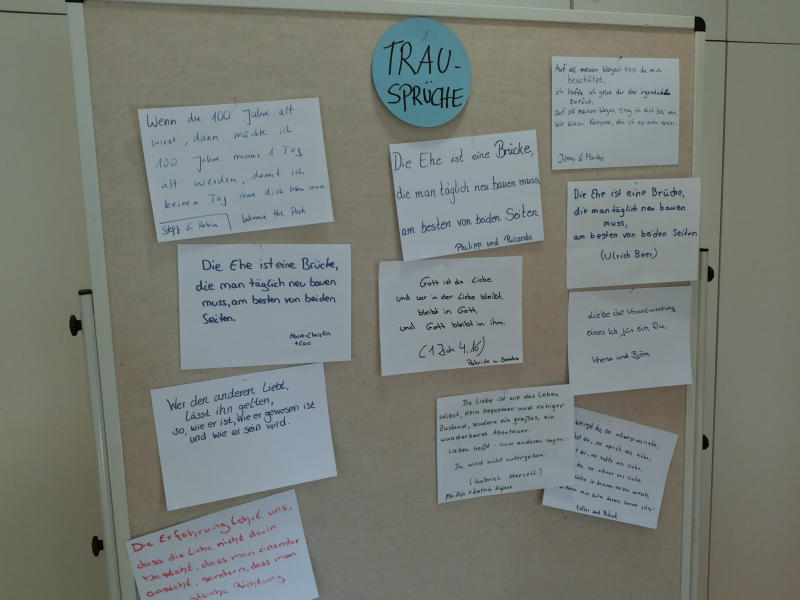 TRAU-
SPRÜCHE
Wenn du 100 Jahre alt
wirst, dann möchte ich
100 Jahre minus 1 Tag
alt werden, damit ich
keinen Tag ohne dich leben muss.
Steffi & Robin
Winnie the Pooh
Die Ehe ist eine Brücke,
die man täglich neu bauen muss,
am besten von beiden Seiten.
Philipp und Ricarda
Auf all meinen Wegen hast du mich
beschützt,
ich hoffe ich gebe dir das irgendwie
zurück.
Auf all meinen Wegen, trag ich dich bei mir,
wie einen Kompass, den ich nie mehr
Jenny &
Die Ehe ist eine Brücke,
die man täglich neu bauen
muss,
am besten von beiden Seiten
(Ulrich Beer)
Die Ehe ist eine Brücke,
die man täglich neu bauen
muss, am besten von beiden
Seiten.
Gott ist die Liebe
und wer in der Liebe bleibt,
bleibt in Gott,
und Gott bleibt in ihm.
(1 Joh 4.16)
Patrick u. Sandra
Liebe ist Verantwortung
eines Ich für ein Du.
Verena und Björn
Wer den anderen liebt,
lässt ihn gelten,
so, wie er ist, wie er gewesen ist
und wie er sein wird.
Die Liebe ist wie das Leben
selbst, kein bequemer und ruhiger
Zustand, sondern ein großes, ein
wunderbares Abenteuer.
Lieben heißt - zum anderen sagen:
Du wirst nicht untergehen.
(Gabriel Marcell)
schweigst du, so schweige aus Liebe,
du, so sprich aus Liebe,
du, so aus Liebe,
du, so aus Liebe,
Liebe in deinem
Die Erfahrung lehrt uns,
dass die Liebe nicht darin
besteht, dass man einander
ansieht, sondern, dass man
gleiche Richtung